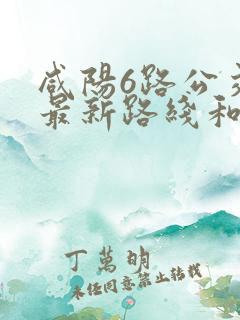 咸陽6路公交
最新路綫和
丁萬明
未经同意禁止转载